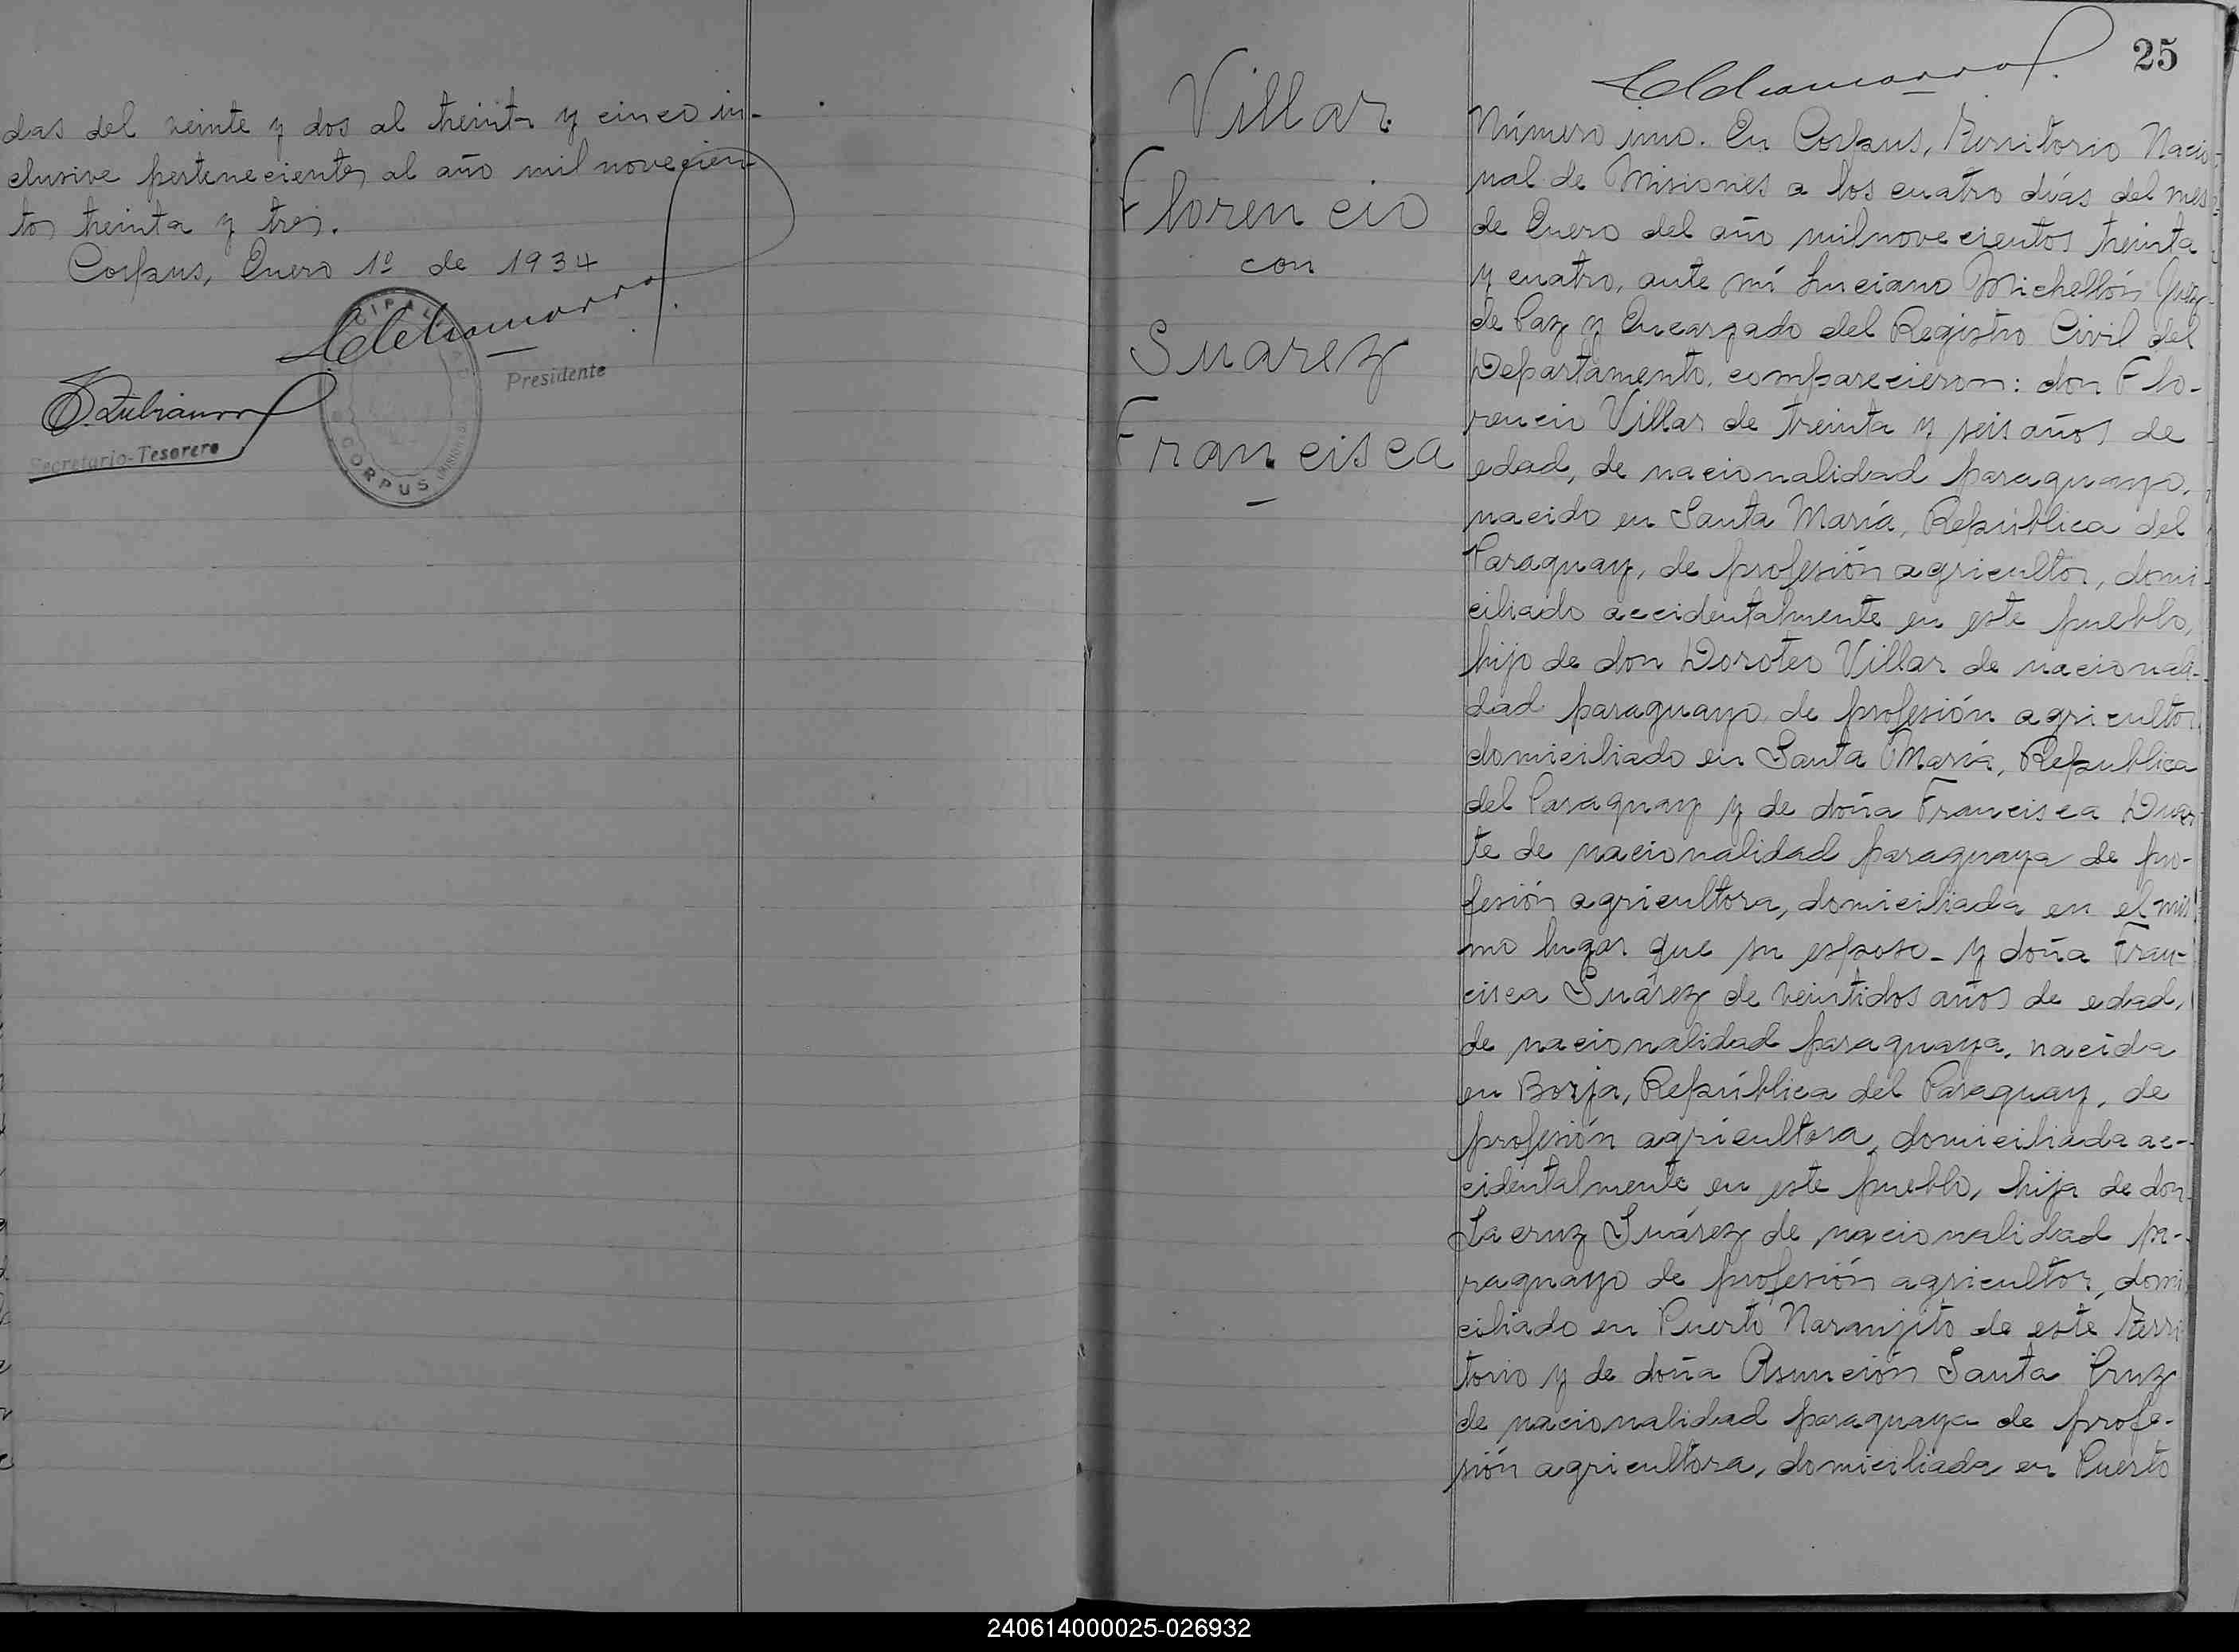 das del veinte y dos al treinta y cinco in-
clusive pertenecientes al año mil novecien
tos treinta y tres.
Corpus, Enero 1º de 1934
Presidente
Secretario-Tesorero
CORPUS
25
Villar
Florencio
con
Suarez
Francisca
Número uno. En Corpus, Territorio Nacio-
nal de Misiones a los cuatro días del mes
de Enero del año milnovecientos treinta
y cuatro, ante mí Luciano Michellón Juez
de Paz y Encargado del Registro Civil del
Departamento, comparecieron: don Flo-
rencio Villar de treinta y seis años de
edad, de nacionalidad paraguayo,
nacido en Santa María, República del
Paraguay, de profesión agricultor, domi-
ciliado accidentalmente en este pueblo,
hijo de don Doroteo Villar de nacionali-
dad paraguayo, de profesión agricultor
domiciliado en Santa María, Republica
del Paraguay y de doña Francisca Duar
te de nacionalidad paraguaya de pro-
fesión agricultora, domiciliada en el mis
mo lugar que su esposo - y doña Fran-
cisca Suárez de veintidos años de edad,
de nacionalidad paraguaya, nacida
en Borja, República del Paraguay, de
profesión agricultora, domiciliada ac-
cidentalmente en este pueblo, hija de don
Lacruz Suárez de nacionalidad pa-
raguayo de profesión agricultor, domi
ciliado en Puerto Naranjito de este Terri
torio y de doña Asunción Santa Cruz
de nacionalidad paraguaya de profe-
sión agricultora, domiciliada en Puerto
240614000025-026932